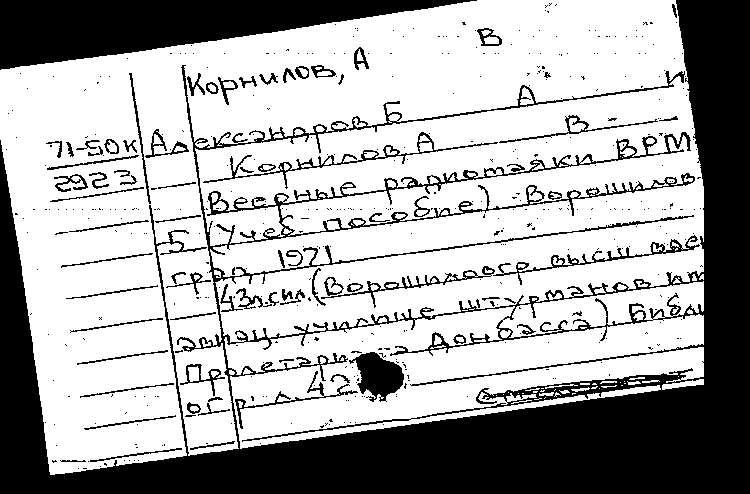 Корнилов, А В
71-50к Александров, Б А И
29223 Корнилов, А В -
Веерные радиомаяки ВРМ-
5 (Учеб. пособие). Ворошилов-
град, 1971.
43л.сил. (Ворошиловогр. высш вое
авиац. училище штурманов им
Пролетари а Донбасса). Библи
огр. л. 42